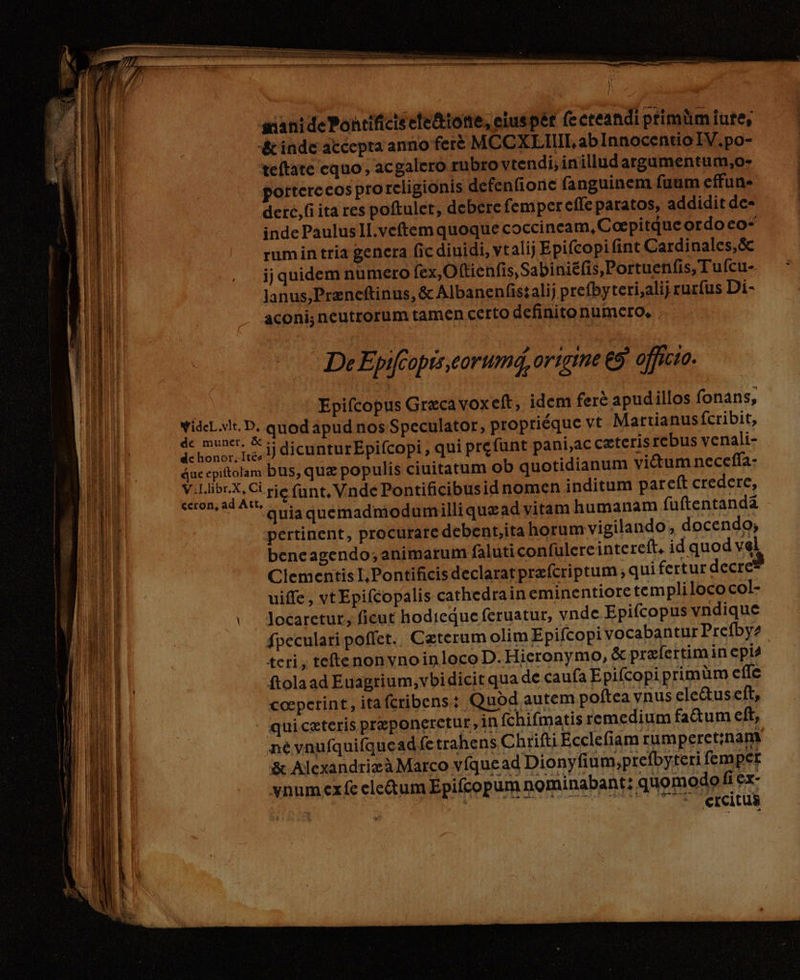 mani de Pontificis electione, eius per se creandi primùm iure,
& inde accepta anno ferè MCCXLIIII, ab Innocentio IV. po-
testate equo, ac galero rubro vtendi, in illud argumentum, o-
portere eos pro religionis defensione sanguinem suum effun-
dere, si ita res postulet, debere semper esse paratos, addidit de-
inde Paulus II. vestem quoque coccineam, Cœpitque ordo eo-
rum in tria genera sic diuidi, vt alij Episcopi sint Cardinales, &
ij quidem numero sex, Ostiensis, Sabiniésis, Portuensis, Tuscu-
lanus, Prænestinus, & Albanensis: alij presbyteri, alij rursus Di-
aconi; neutrorum tamen certo definito numero.
De Episcopis, eorumq, origine & officio.
Episcopus Græca vox est, idem ferè apud illos sonans,
Vide L. vlt. D. quod apud nos Speculator, propriéque vt Martianus scribit,
de muner. & ij dicuntur Episcopi, qui pręsunt pani, ac cæteris rebus venali-
de honor. Ité
que epistolam bus, quæ populis ciuitatum ob quotidianum victum necessa-
V. I. libr. X, Ci rię sunt. Vnde Pontificibus id nomen inditum par est credere,
ceron, ad Att. quia quemadmodum illi quæ ad vitam humanam sustentandã
pertinent, procurare debent, ita horum vigilando, docendo,
bene agendo, animarum saluti consulere interest. id quod vel
Clementis I, Pontificis declarat præscriptum, qui fertur decre-
uisse, vt Episcopalis cathedra in eminentiore templi loco col-
locaretur, sicut hodieque seruatur, vnde Episcopus vndique
speculari posset. Cæterum olim Episcopi vocabantur Presby-
teri, teste non vno in loco D. Hieronymo, & præsertim in epi-
stola ad Euagrium, vbi dicit qua de causa Episcopi primùm esse
cœperint, ita scribens: Quòd autem postea vnus electus est,
qui cæteris præponeretur, in schismatis remedium factum est,
né vnusquisque ad se trahens Christi Ecclesiam rumperet: nam
& Alexandriæ à Marco vsque ad Dionysium, presbyteri semper
vnum ex se electum Episcopum nominabant: quomodo si ex-
ercitus